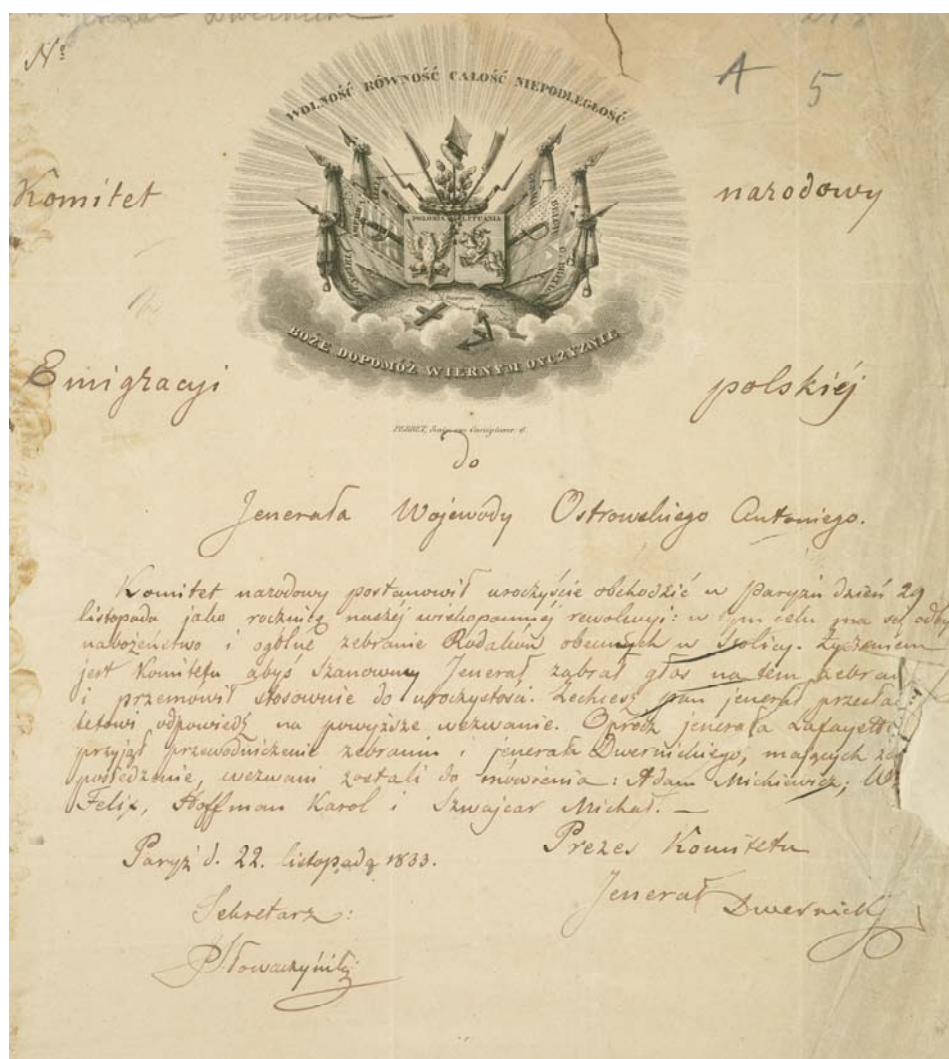 Jenerał Dwernicki
Nº
A 5
WOLNOŚĆ RÓWNOŚĆ CAŁOŚĆ NIEPODLEGŁOŚĆ
Komitet narodowy
POLONIA LITUANIA
BOŻE DOPOMÓŻ WIERNYM OYCZYZNIE
Emigracyi polskiéj
PERRET,
do
Jenerała Wojewody Ostrowskiego Antoniego.
Komitet narodowy postanowił uroczyście obchodzić w Paryżu dzień 29
listopada jako rocznicę naszéj wiekopomnéj rewolucyi: w tym celu ma się odby
nabożeństwo i ogólne zebranie Rodaków obecnych w stolicy. Życzeniem
jest Komitetu abyś Szanowny Jenerał zabrał głos na tém zebran
i przemówił stosownie do uroczystości. Zechcesz pan jenerał przesła
tetowi odpowiedź na powyższe wezwanie. Oprócz jenerała Lafayetta
przyjął przewodniczenie zebraniu i jenerała Dwernickiego, mających za
posiedzenie, wezwani zostali do mówienia: Adam Mickiewicz;
Felix, Hoffman Karol i Szwajcar Michał. —
Paryż d. 22. listopada 1833.
Prezes Komitetu
Jenerał Dwernicki
Sekretarz: